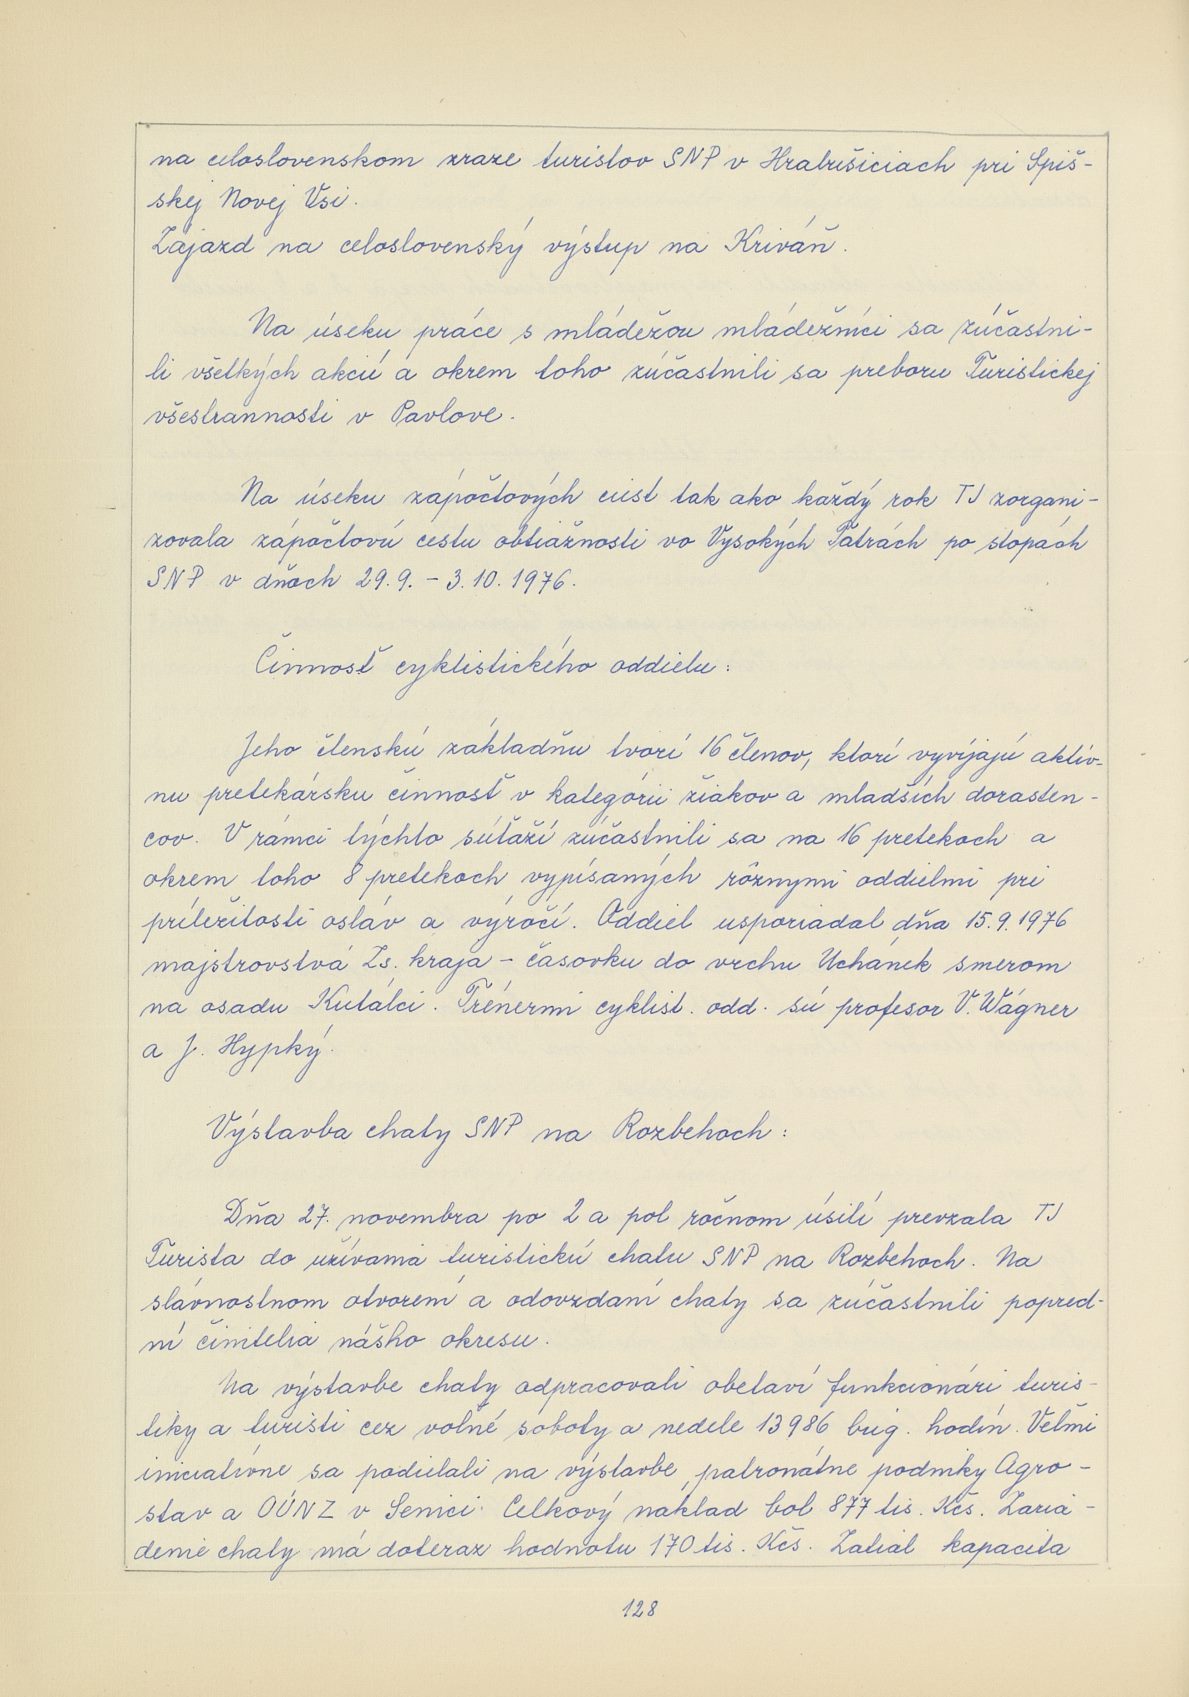 na celoslovenskom zraze turistov SNP v Hrabušiciach pri Spiš-
skej Novej Vsi.
Zájazd na celoslovenský výstup na Kriváň.
Na úseku práce s mládežou mládežníci sa zúčastni-
li všetkých akcií a okrem toho zúčastnili sa preboru Turistickej
všestrannosti v Pavlove.
Na úseku zápočtových ciest tak ako každý rok TJ zorgani-
zovala zápočtovú cestu obtiažnosti vo Vysokých Tatrách po stopách
SNP v dňoch 29.9. - 3.10.1976.
Činnosť cyklistického oddielu:
Jeho členskú základňu tvorí 16 členov, ktorí vyvíjajú aktív-
nu pretekársku činnosť v kategórii žiakov a mladších dorasten-
cov. V rámci týchto súťaží zúčastnili sa na 16 pretekoch a
okrem toho 8 pretekoch vypísaných rôznymi oddielmi pri
príležitosti osláv a výročí. Oddiel usporiadal dňa 15.9.1976
majstrovstvá Zs. kraja - časovku do vrchu Uchánek smerom
na osadu Kutálci. Trénermi cyklist. odd. sú profesor V. Wágner
a J. Hypký.
Výstavba chaty SNP na Rozbehoch:
Dňa 27. novembra po 2 a pol ročnom úsilí prevzala TJ
Turista do užívania turistickú chatu SNP na Rozbehoch. Na
slávnostnom otvorení a odovzdaní chaty sa zúčastnili popred-
ní činitelia nášho okresu.
Na výstavbe chaty odpracovali obetaví funkcionári turis-
tiky a turisti cez voľné soboty a nedele 13986 brig. hodín. Veľmi
iniciatívne sa podielali na výstavbe, patronátne podniky Agro-
stav a OÚNZ v Senici. Celkový náklad bol 877 tis. Kčs. Zaria-
denie chaty má doteraz hodnotu 170 tis. Kčs. Zatial kapacita
128